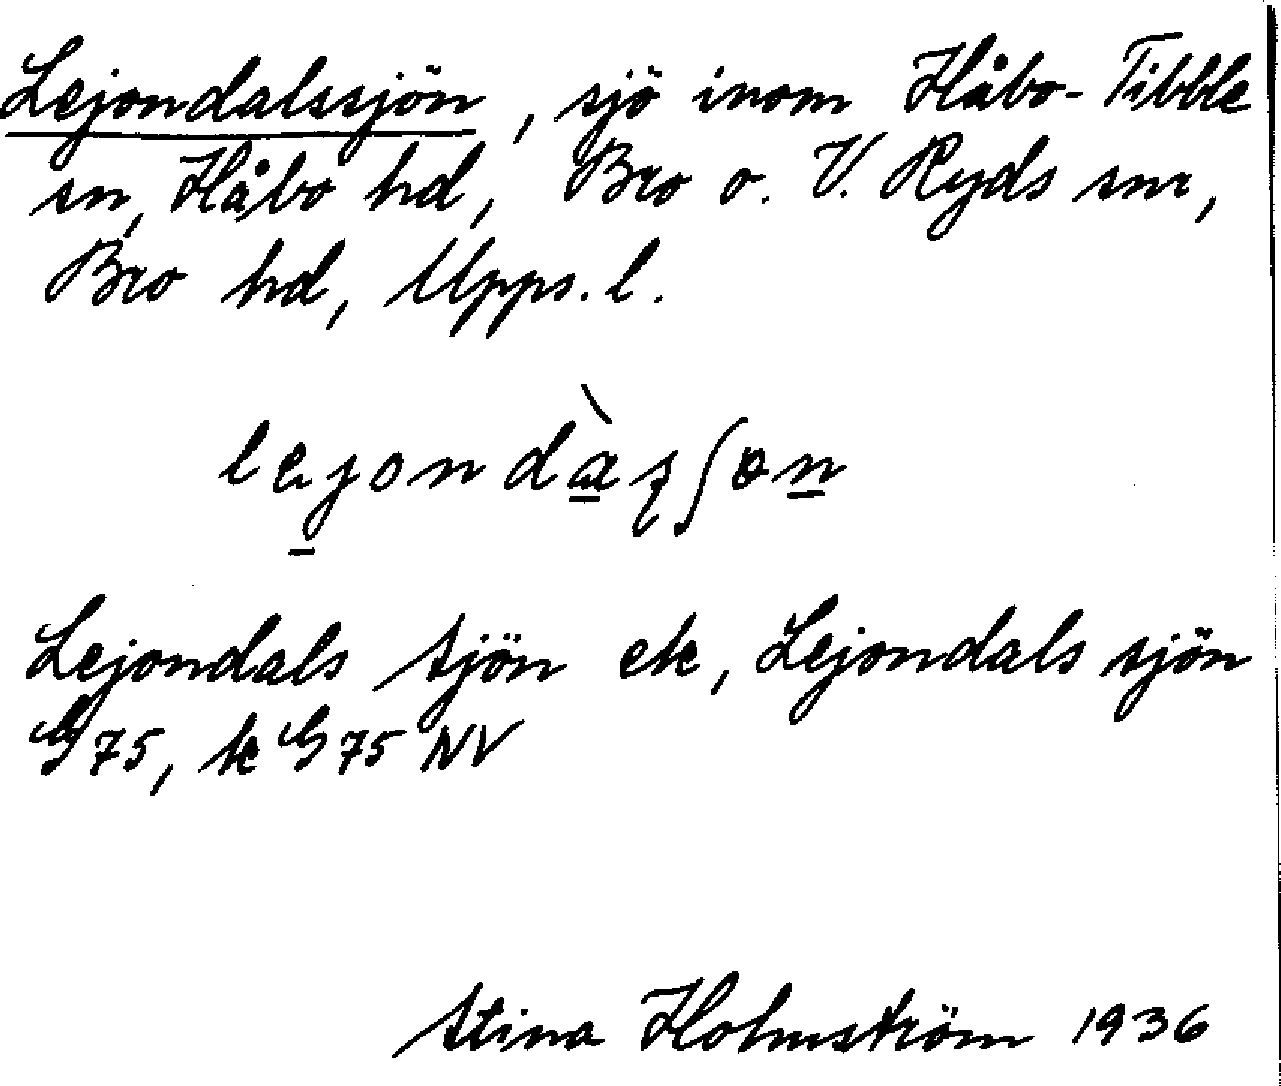 Lejondalssjön, sjö inom Håbo-Tibble
sn, Håbo hd, Bro o. V. Ryds snr,
Bro hd, Upps. l.
lejondàsʃɵn
Lejondals Sjön ek, Lejondals sjön
G 75, k G 75 NV
Stina Holmström 1936